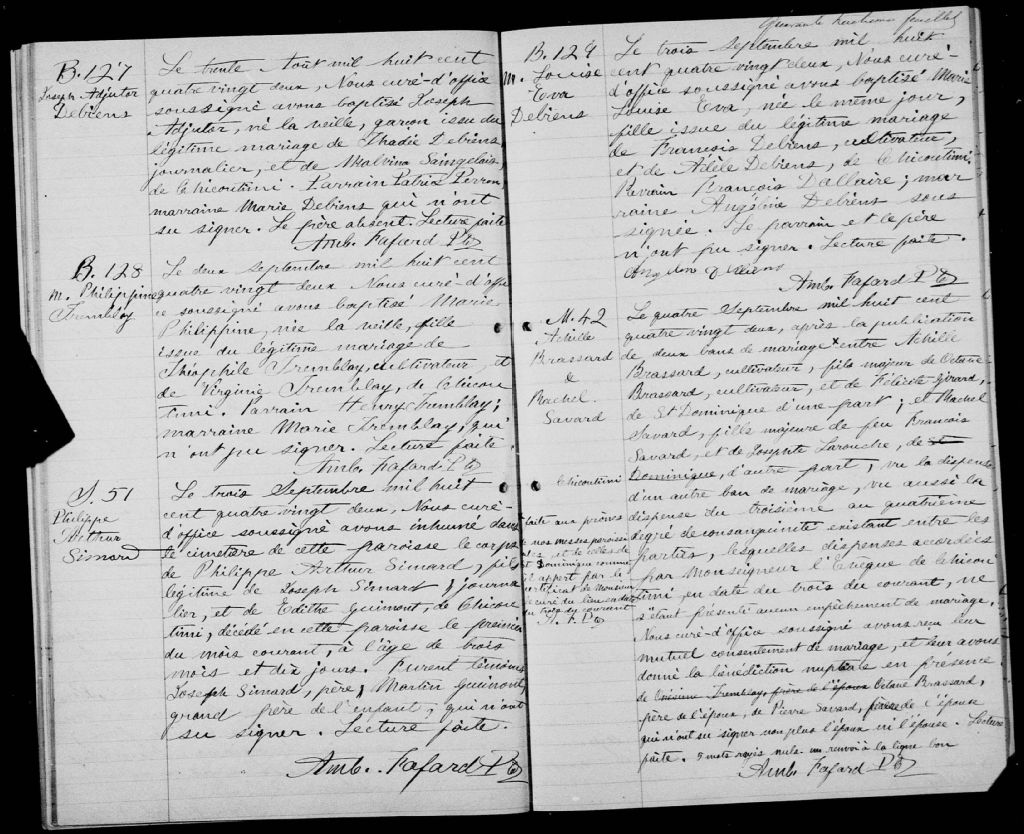 B. 127
Joseph Adjutor
Debiens
Le trente Août mil huit cent
quatre vingt deux, Nous curé-d'office
soussigné avons baptisé Joseph
Adjutor, né la veille, garçon issu du
légitime mariage de Thadée Debiens,
journalier, et de Malvina Saingelais,
de Chicoutimi. Parrain Patrice Perron,
marraine Marie Debiens qui n'ont
su signer. Le père absent. Lecture faite
Amb. Fafard Ptr
B. 128
M. Philippine
Tremblay
Le deux septembre mil huit cent
quatre vingt deux Nous curé-d'offi
ce soussigné avons baptisé Marie
Philippine, née la veille, fille
issue du légitime mariage de
Théophile Tremblay, cultivateur, et
de Virginie Tremblay, de Chicou
timi. Parrain Henry Tremblay;
marraine Marie Tremblay, qui
n'ont pu signer. Lecture faite.
Amb. Fafard Ptr
S. 51
Philippe
Arthur
Simard
Le trois Septembre mil huit
cent quatre vingt deux, Nous curé-
d'office soussigné avons inhumé dans
le cimetière de cette paroisse le corps
de Philippe Arthur Simard, fils
légitime de Joseph Simard, journa
lier, et de Edithe Guimont, de Chicou
timi, décédé en cette paroisse le premier
du mois courant, à l'âge de trois
mois et dix jours. Furent témoins
Joseph Simard, père, Martin Guimont,
grand père de l'enfant, qui n'ont
su signer. Lecture faite.
Amb. Fafard Ptr
Quarante huitième feuillet
B. 129
M. Louise
Eva
Debiens
Le trois septembre mil huit
cent quatre vingt deux, Nous curé-
d'office soussigné avons baptisé Marie
Louise Eva, née le même jour,
fille issue du légitime mariage
de François Debiens, cultivateur,
et de Adèle Debiens, de Chicoutimi.
Parrain François Dallaire; mar
raine Angéline Debiens sous
signée. Le parrain et le père
n'ont pu signer. Lecture faite.
Amb. Fafard Ptr
M. 42
Achille
Brassard
&
Rachel
Savard
Le quatre Septembre mil huit cent
quatre vingt deux, après la publication
de deux bans de mariage x entre Achille
Brassard, cultivateur, fils majeur de Octave
Brassard, cultivateur, et de Félicité Girard,
de St Dominique d'une part; et Rachel
Savard, fille majeure de feu François
Savard, et de Josephte Larouche, de St
Dominique, d'autre part; vu la dispense
d'un autre ban de mariage, vu aussi la
dispense du troisième au quatrième
degré de consanguinité existant entre les
parties, lesquelles dispenses accordées
par Monseigneur l'Evêque de Chicou
timi, en date du trois du courant, ne
s'étant présenté aucun empêchement de mariage,
Nous curé-d'office soussigné avons reçu leur
mutuel consentement de mariage, et leur avons
donné la bénédiction nuptiale en présence
de Onésime Tremblay, frère de l'époux Octave Brassard,
père de l'époux, de Pierre Savard, frère de l'épouse
qui n'ont su signer non plus l'époux ni l'épouse. Lecture
faite. 5 mots rayés nuls. un renvoi à la ligne bon
Amb. Fafard Ptr
Chicoutimi
faite aux prônes
de nos messes paroissi
ales, et de celles de
St Dominique comme
il appert par le
certificat de Monsieur
le curé du lieu en date
du trois du courant
A. F. Ptr